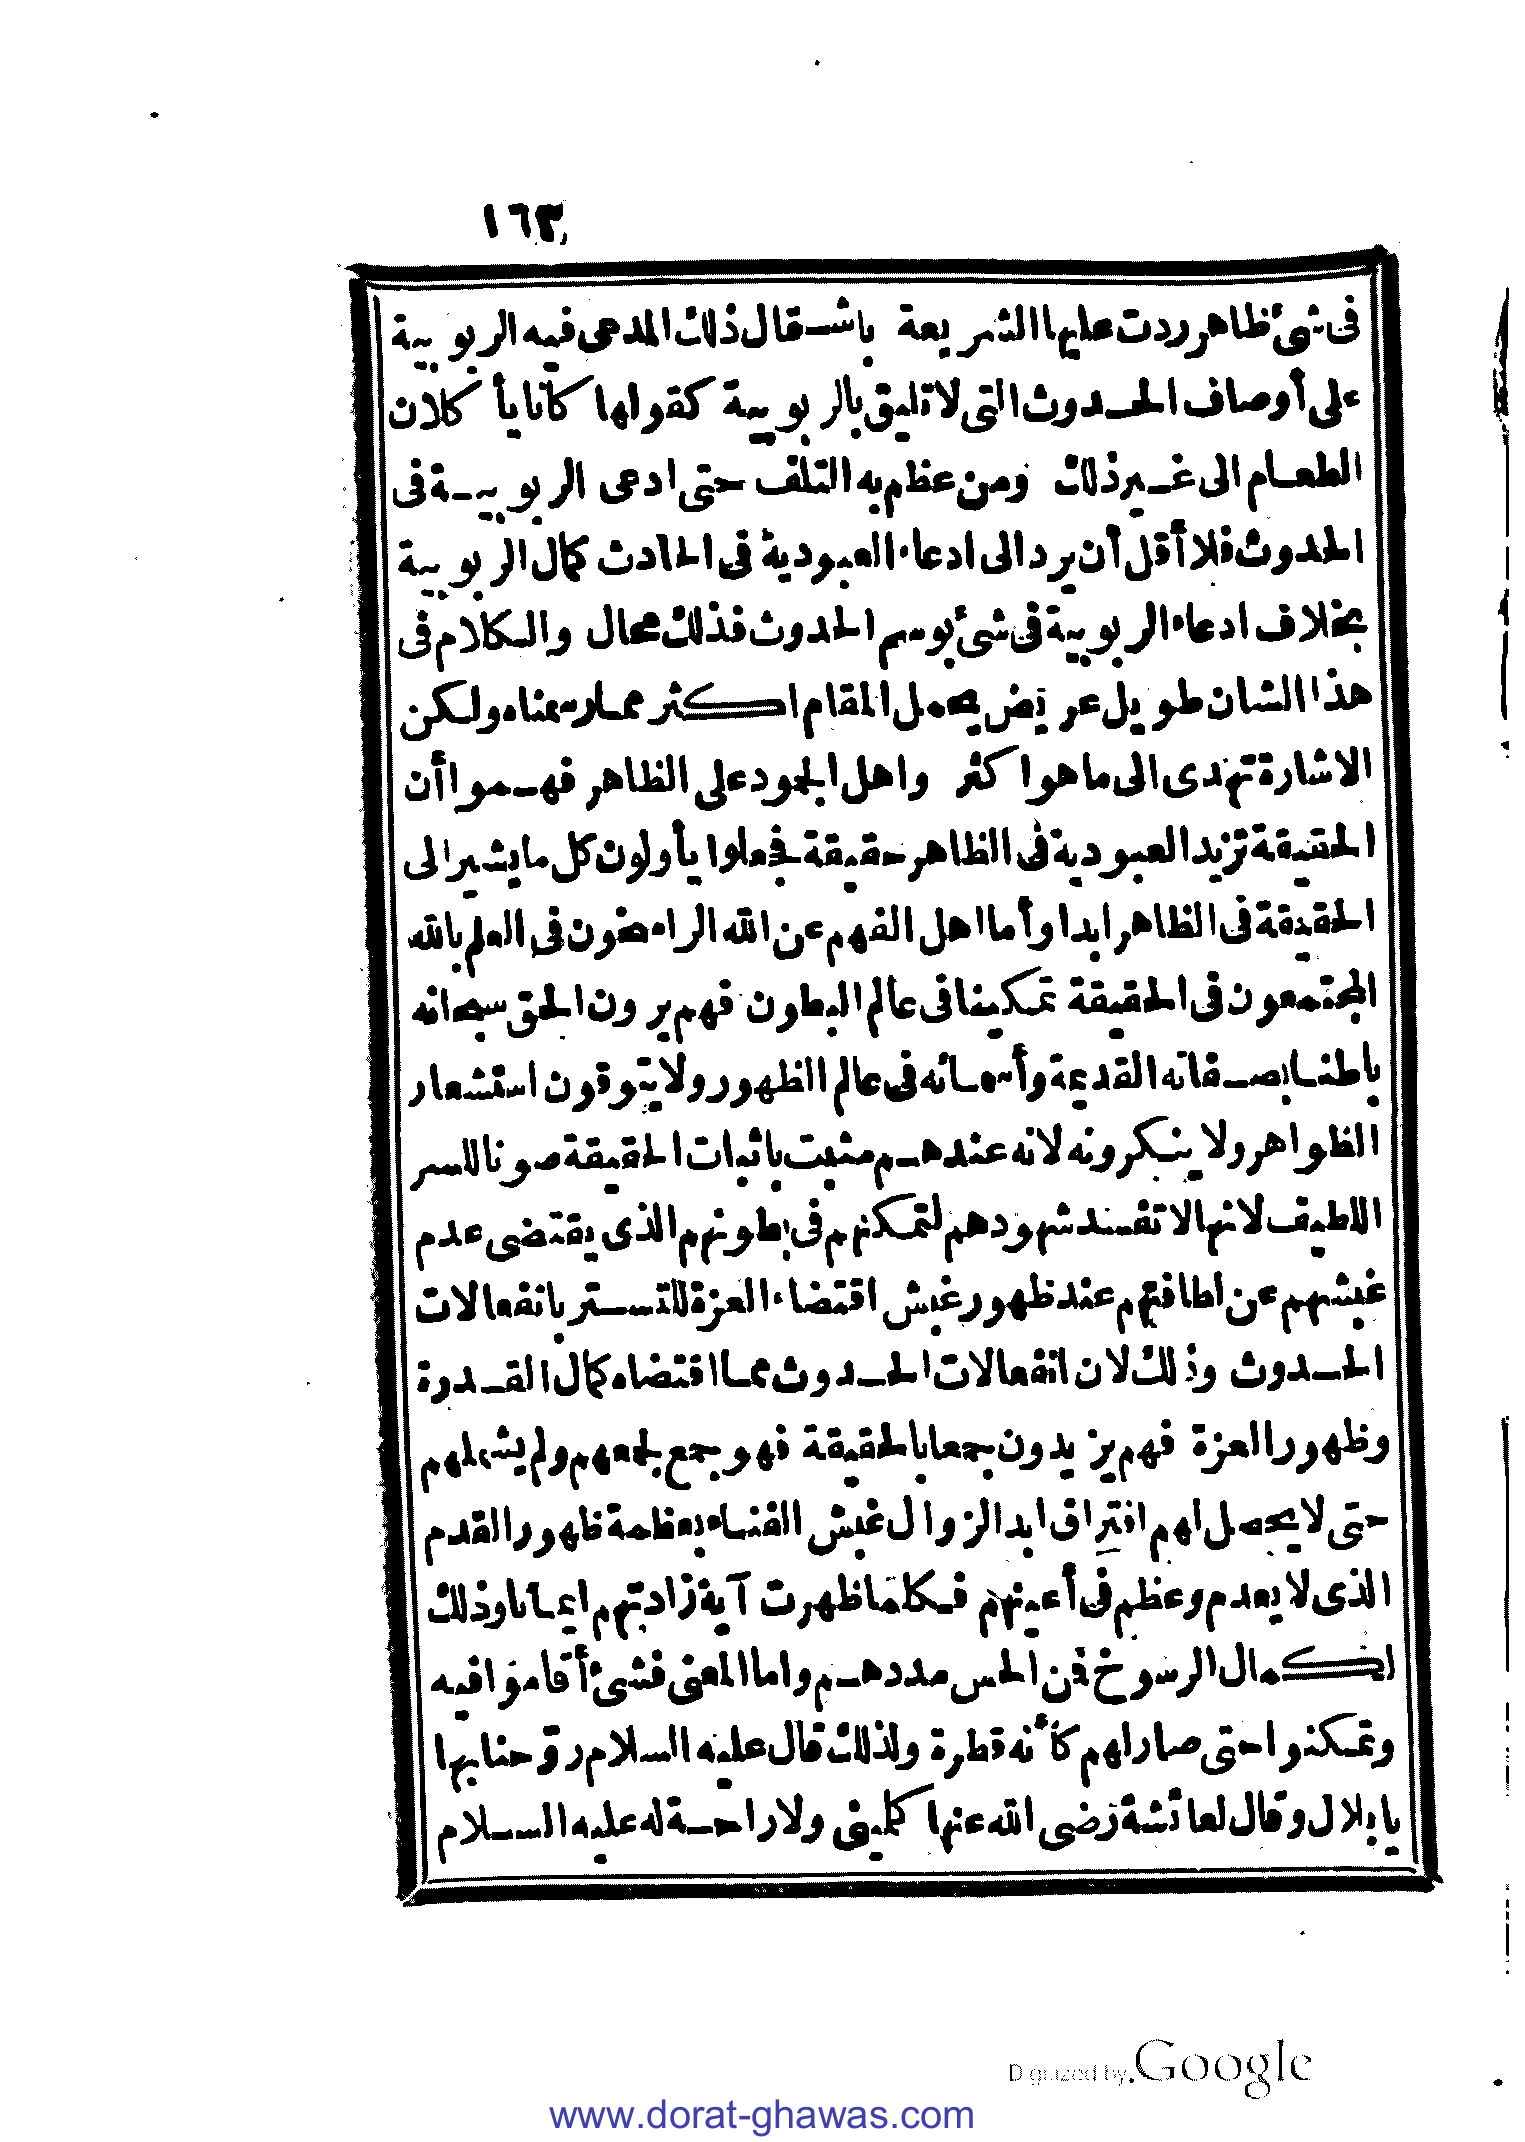 ١٦٣
فى شئ ظاهر ردت عليها الشريعة باشتقال ذلك المدعى فيه الربوبية
على أوصاف الحدوث التى لا تليق بالربوبية كقولها كانا يأكلان
الطعام الى غير ذلك ومن عظم به التلف حتى ادعى الربوبية فى
الحدوث فلا أقل أن يرد الى ادعاء العبودية فى الحادث كمال الربوبية
بخلاف ادعاء الربوبية فى شئ بوسم الحدوث فذلك محال والكلام فى
هذا الشان طويل عريض يحمل المقام اكثر ممارسمناه ولكن
الاشارة تهدى الى ما هو اكثر واهل الجود على الظاهر فهموا أن
الحقيقة تزيد العبودية فى الظاهر حقيقة فجعلوا يأولون كل ما يشير الى
الحقيقة فى الظاهر ابدا وأما اهل الفهم عن الله الراسخون فى العلم بالله
المجتمعون فى الحقيقة تمكينا فى عالم البطون فهم يرون الحق سبحانه
باطنا بصفاته القديمة وأسمائه فى عالم الظهور ولا يتوقون استشعار
الظواهر ولا ينكرونه لانه عندهم مثبت باثبات الحقيقة صونا للسر
اللطيف لانها لا تفسد شهودهم لتمكنهم فى بطونهم الذى يقتضى عدم
غبشهم عن لطافتهم عند ظهور غبش اقتضاء العزة للتستر بانفعالات
الحدوث وذلك لان انفعالات الحدوث مما اقتضاه كمال القدرة
وظهور العزة فهم يزيدون جمعا بالحقيقة فهو جمع لجمعهم ولم يشملهم
حتى لا يحصل لهم افتراق ابد الزوال غبش الفناء بعظمة ظهور القدم
الذى لا يعدم وعظم فى أعينهم فكلما ظهرت آية زادتهم ايمانا وذلك
لكمال الرسوخ فمن الحس مددهم واما المعنى فشئ أقاموا فيه
وتمكنوا حتى صار لهم كأنه قطرة ولذلك قال عليه السلام روّحنا بها
يا بلال وقال لعائشة رضى الله عنها كلينى ولا راحة له عليه السلام
Digitized by Google
www.dorat-ghawas.com